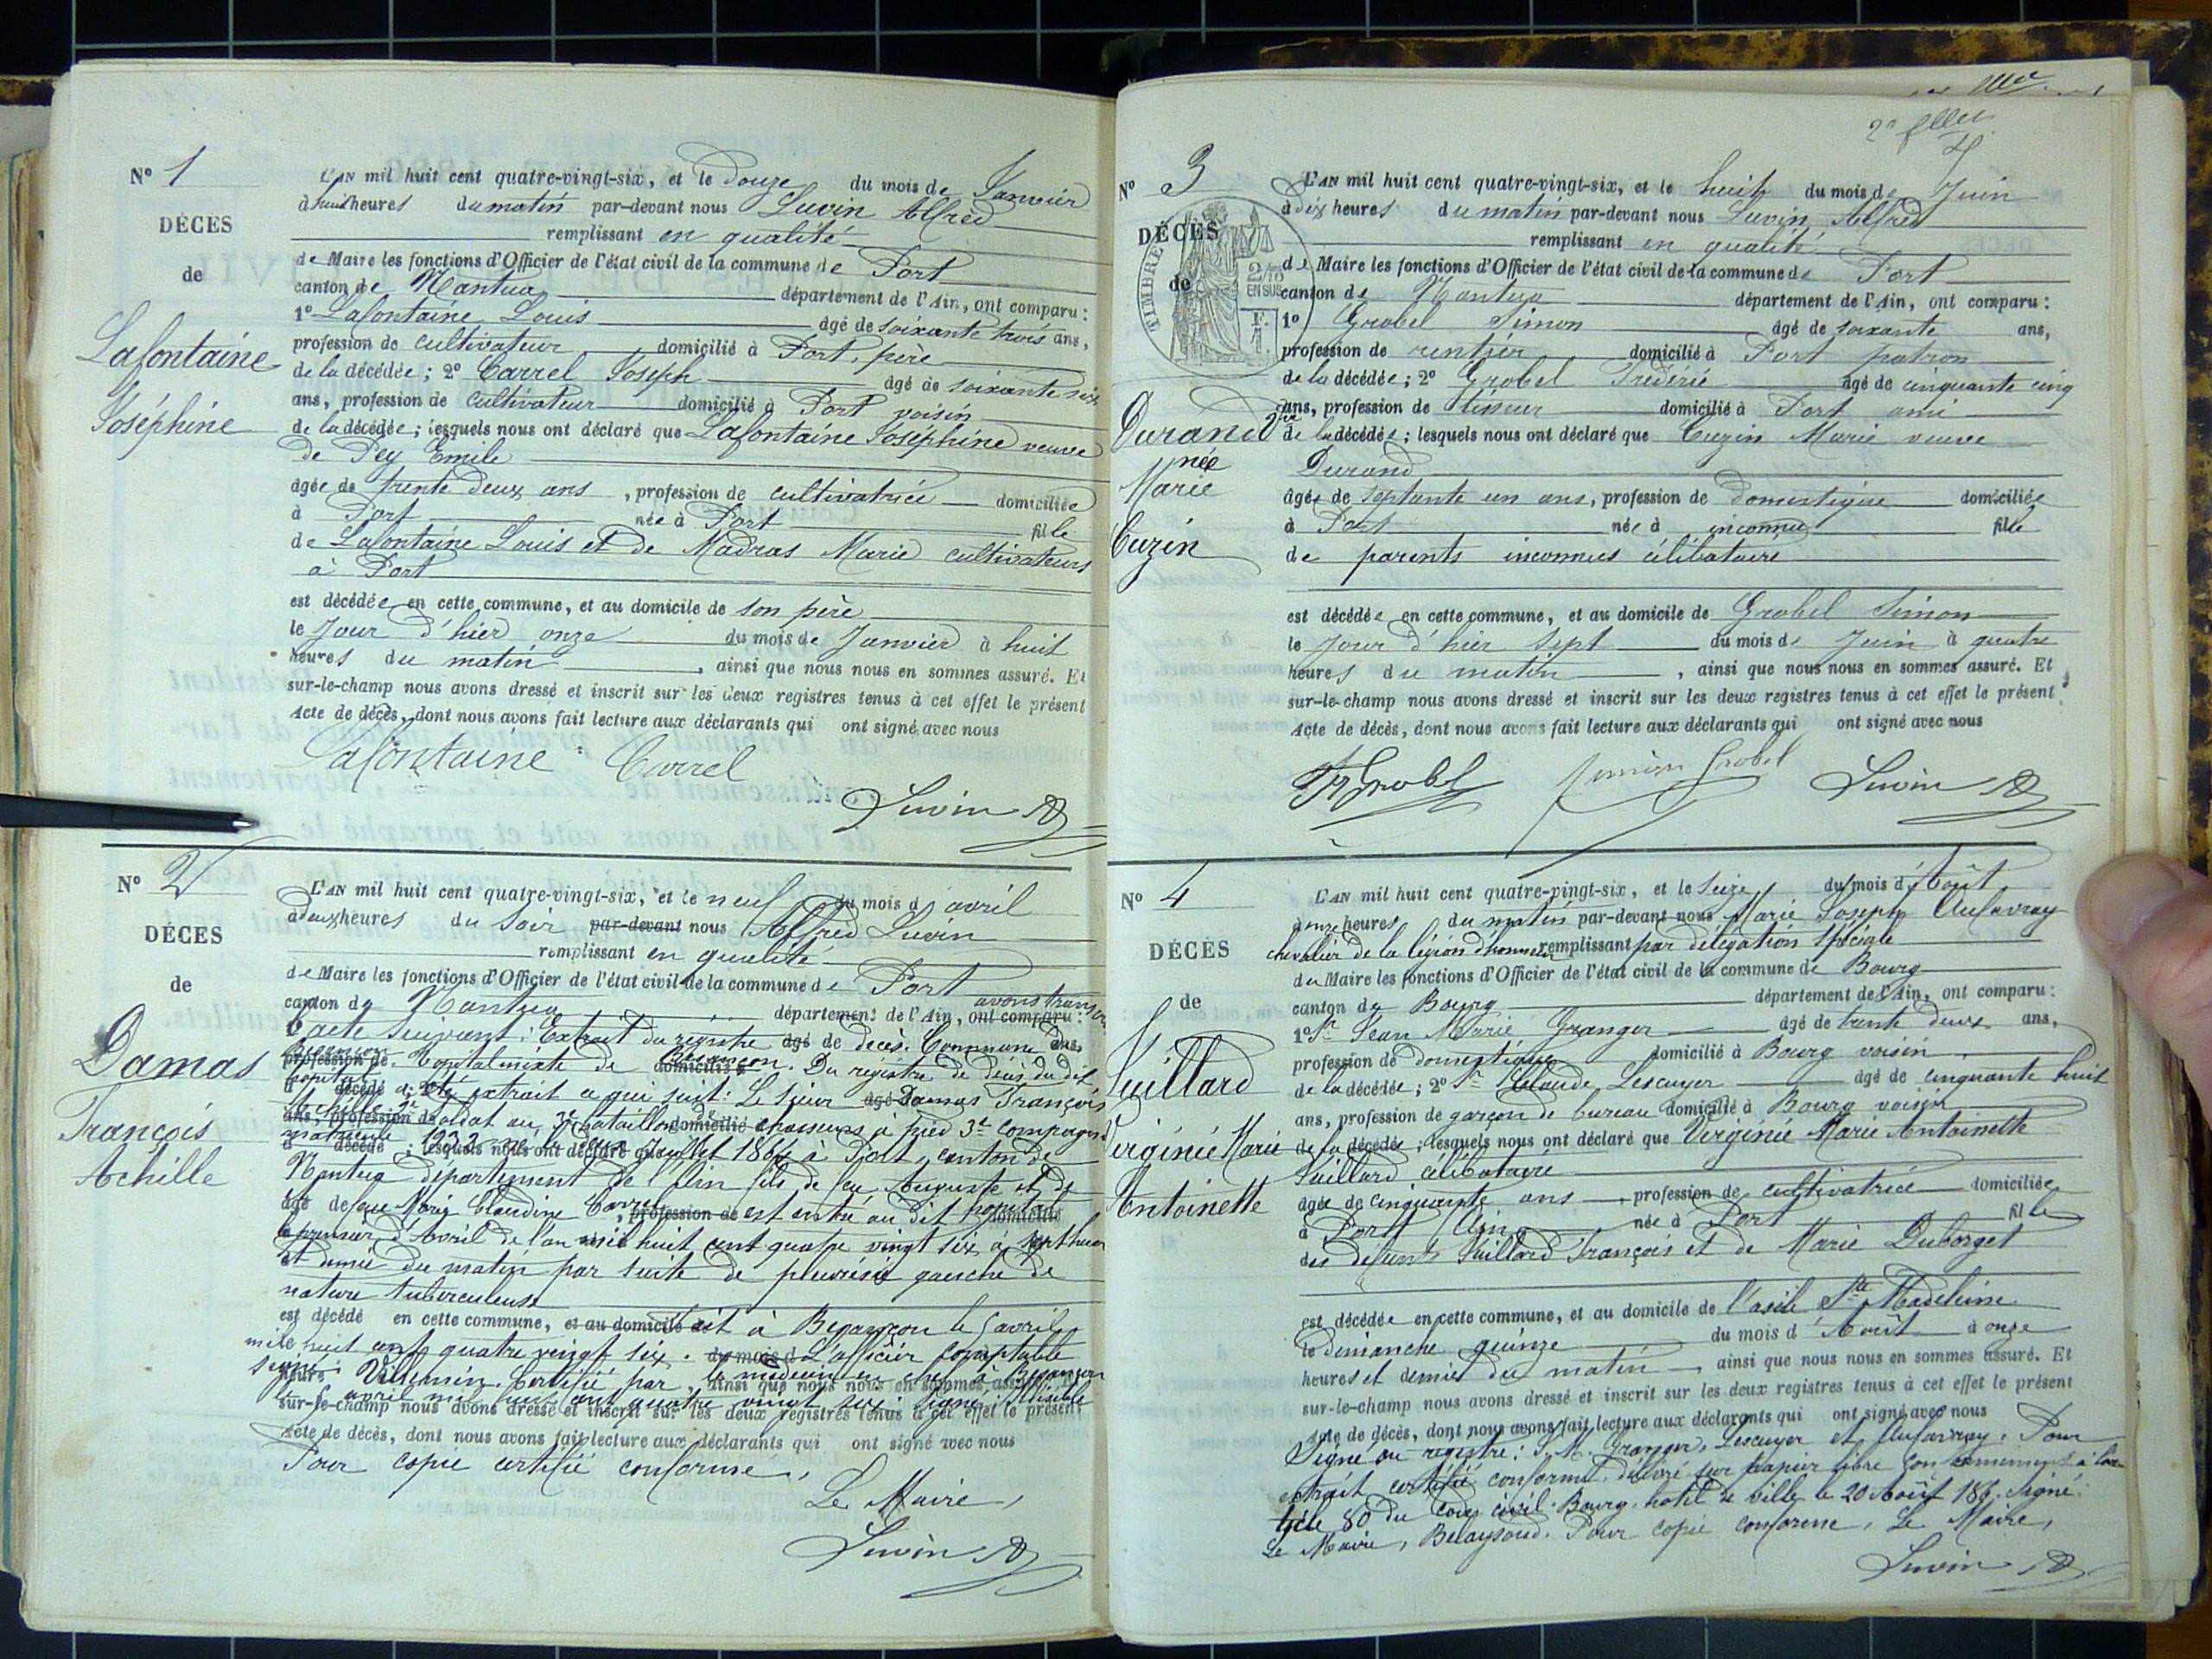 N° 1
DÉCÈS
de
Lafontaine
Joséphine
L'AN mil huit cent quatre-vingt-six, et le Douze du mois de Janvier
à huit heures du matin par-devant nous Luvin Alfred
remplissant en qualité
de Maire les fonctions d'Officier de l'état civil de la commune de Port
canton de Nantua département de l'Ain, ont comparu :
1° Lafontaine Louis âgé de soixante trois ans,
profession de cultivateur domicilié à Port, père
de la décédée ; 2° Carrel Joseph âgé de soixante six
ans, profession de cultivateur domicilié à Port voisin
de la décédée ; lesquels nous ont déclaré que Lafontaine Joséphine veuve
de Pey Emile
âgée de trente deux ans, profession de cultivatrice domiciliée
à Port née à Port fille
de Lafontaine Louis et de Madras Marie cultivateurs
à Port
est décédée en cette commune, et au domicile de son père
le Jour d'hier onze du mois de Janvier à huit
heures du matin, ainsi que nous nous en sommes assuré. Et
sur-le-champ nous avons dressé et inscrit sur les deux registres tenus à cet effet le présent
Acte de décès, dont nous avons fait lecture aux déclarants qui ont signé avec nous
Lafontaine Carrel
Luvin A
N° 2
DÉCES
de
Damas
François
Achille
L'AN mil huit cent quatre-vingt-six, et le neuf du mois d'avril
à deux heures du soir par-devant nous Alfred Luvin
remplissant en qualité
de Maire les fonctions d'Officier de l'état civil de la commune de Port
canton de Nantua département de l'Ain, ont comparu : avons
l'acte suivant : Extrait du registre âgé de décès. Commune de
Besançon. Hopital mixte de Besançon. Du registre de décès du dit
hopital a été extrait ce qui suit : Le Sieur Damas François
Achille soldat au 3e bataillon de chasseurs à pied 3e compagnie
matricule 1232 né le deux Juillet 1864 à Port, canton de
Nantua département de l'Ain fils de feu Auguste et de
âgé de feue Marie Claudine Carrel, profession de est entré au dit hopital domicilié
le premier d'Avril de l'an mil huit cent quatre vingt six à sept heures
et demie du matin par suite de pleurésie gauche de
nature tuberculeuse
est décédé en cette commune, et au domicile de fait à Besançon le 5 avril
mil huit cent quatre vingt six. du mois d L'officier comptable
signé : Villemin. Certifié par le médecin en chef à Besançon
le 5 avril mil huit cent quatre vingt six. Signé :
sur-le-champ nous avons dressé et inscrit sur les deux registres tenus à cet effet le présent
Acte de décès, dont nous avons fait lecture aux déclarants qui ont signé avec nous
Pour copie certifié conforme,
Le Maire,
Luvin A
2e feuillet
N° 3
DÉCÈS
de
TIMBRE
2/10 EN SUS
1 F.
Durand Vve
née
Marie
Cuzin
L'AN mil huit cent quatre-vingt-six, et le huit du mois de Juin
à dix heures du matin par-devant nous Luvin Alfred
remplissant en qualité
de Maire les fonctions d'Officier de l'état civil de la commune de Port
canton de Nantua département de l'Ain, ont comparu :
1° Grobel Simon âgé de soixante ans,
profession de rentier domicilié à Port patron
de la décédée ; 2° Grobel Frédéric âgé de cinquante cinq
ans, profession de tisseur domicilié à Port ami
de la décédée ; lesquels nous ont déclaré que Cuzin Marie veuve
Durand
âgée de septante un ans, profession de domestique domiciliée
à Port née à inconnu fille
de parents inconnus célibataire
est décédée en cette commune, et au domicile de Grobel Simon
le Jour d'hier sept du mois de Juin à quatre
heures du matin, ainsi que nous nous en sommes assuré. Et
sur-le-champ nous avons dressé et inscrit sur les deux registres tenus à cet effet le présent
Acte de décès, dont nous avons fait lecture aux déclarants qui ont signé avec nous
Fr Grobel Simon Grobel Luvin A
N° 4
DÉCÈS
de
Juillard
Virginie Marie
Antoinette
L'AN mil huit cent quatre-vingt-six, et le Seize du mois d'Août
à onze heures du matin par-devant nous Marie Joseph
chevalier de la légion d'honneur remplissant par délégation spéciale
du Maire les fonctions d'Officier de l'état civil de la commune de Bourg
canton de Bourg département de l'Ain, ont comparu :
1° Sr Jean Marie Granger âgé de trente deux ans,
profession de domestique domicilié à Bourg voisin
de la décédée ; 2° Sr Claude Lescuyer âgé de cinquante huit
ans, profession de garçon de bureau domicilié à Bourg voisin
de la décédée ; lesquels nous ont déclaré que Virginie Marie Antoinette
Juillard célibataire
âgée de cinquante ans, profession de cultivatrice domiciliée
à Port Ain, née à Port fille
des défunts Juillard François et de Marie Duborget
est décédée en cette commune, et au domicile de l'asile Ste Madeleine
le Dimanche quinze du mois d'Août à onze
heures et demie du matin, ainsi que nous nous en sommes assuré. Et
sur-le-champ nous avons dressé et inscrit sur les deux registres tenus à cet effet le présent
Acte de décès, dont nous avons fait lecture aux déclarants qui ont signé avec nous
Signé au registre : J. M. Granger, Lescuyer et. Pour
extrait certifié conforme délivré sur papier libre conformément à l'ar
ticle 80 du code civil. Bourg, hotel de ville le 20 Août 186. Signé :
Le Maire,. Pour copie conforme, Le Maire,
Luvin A